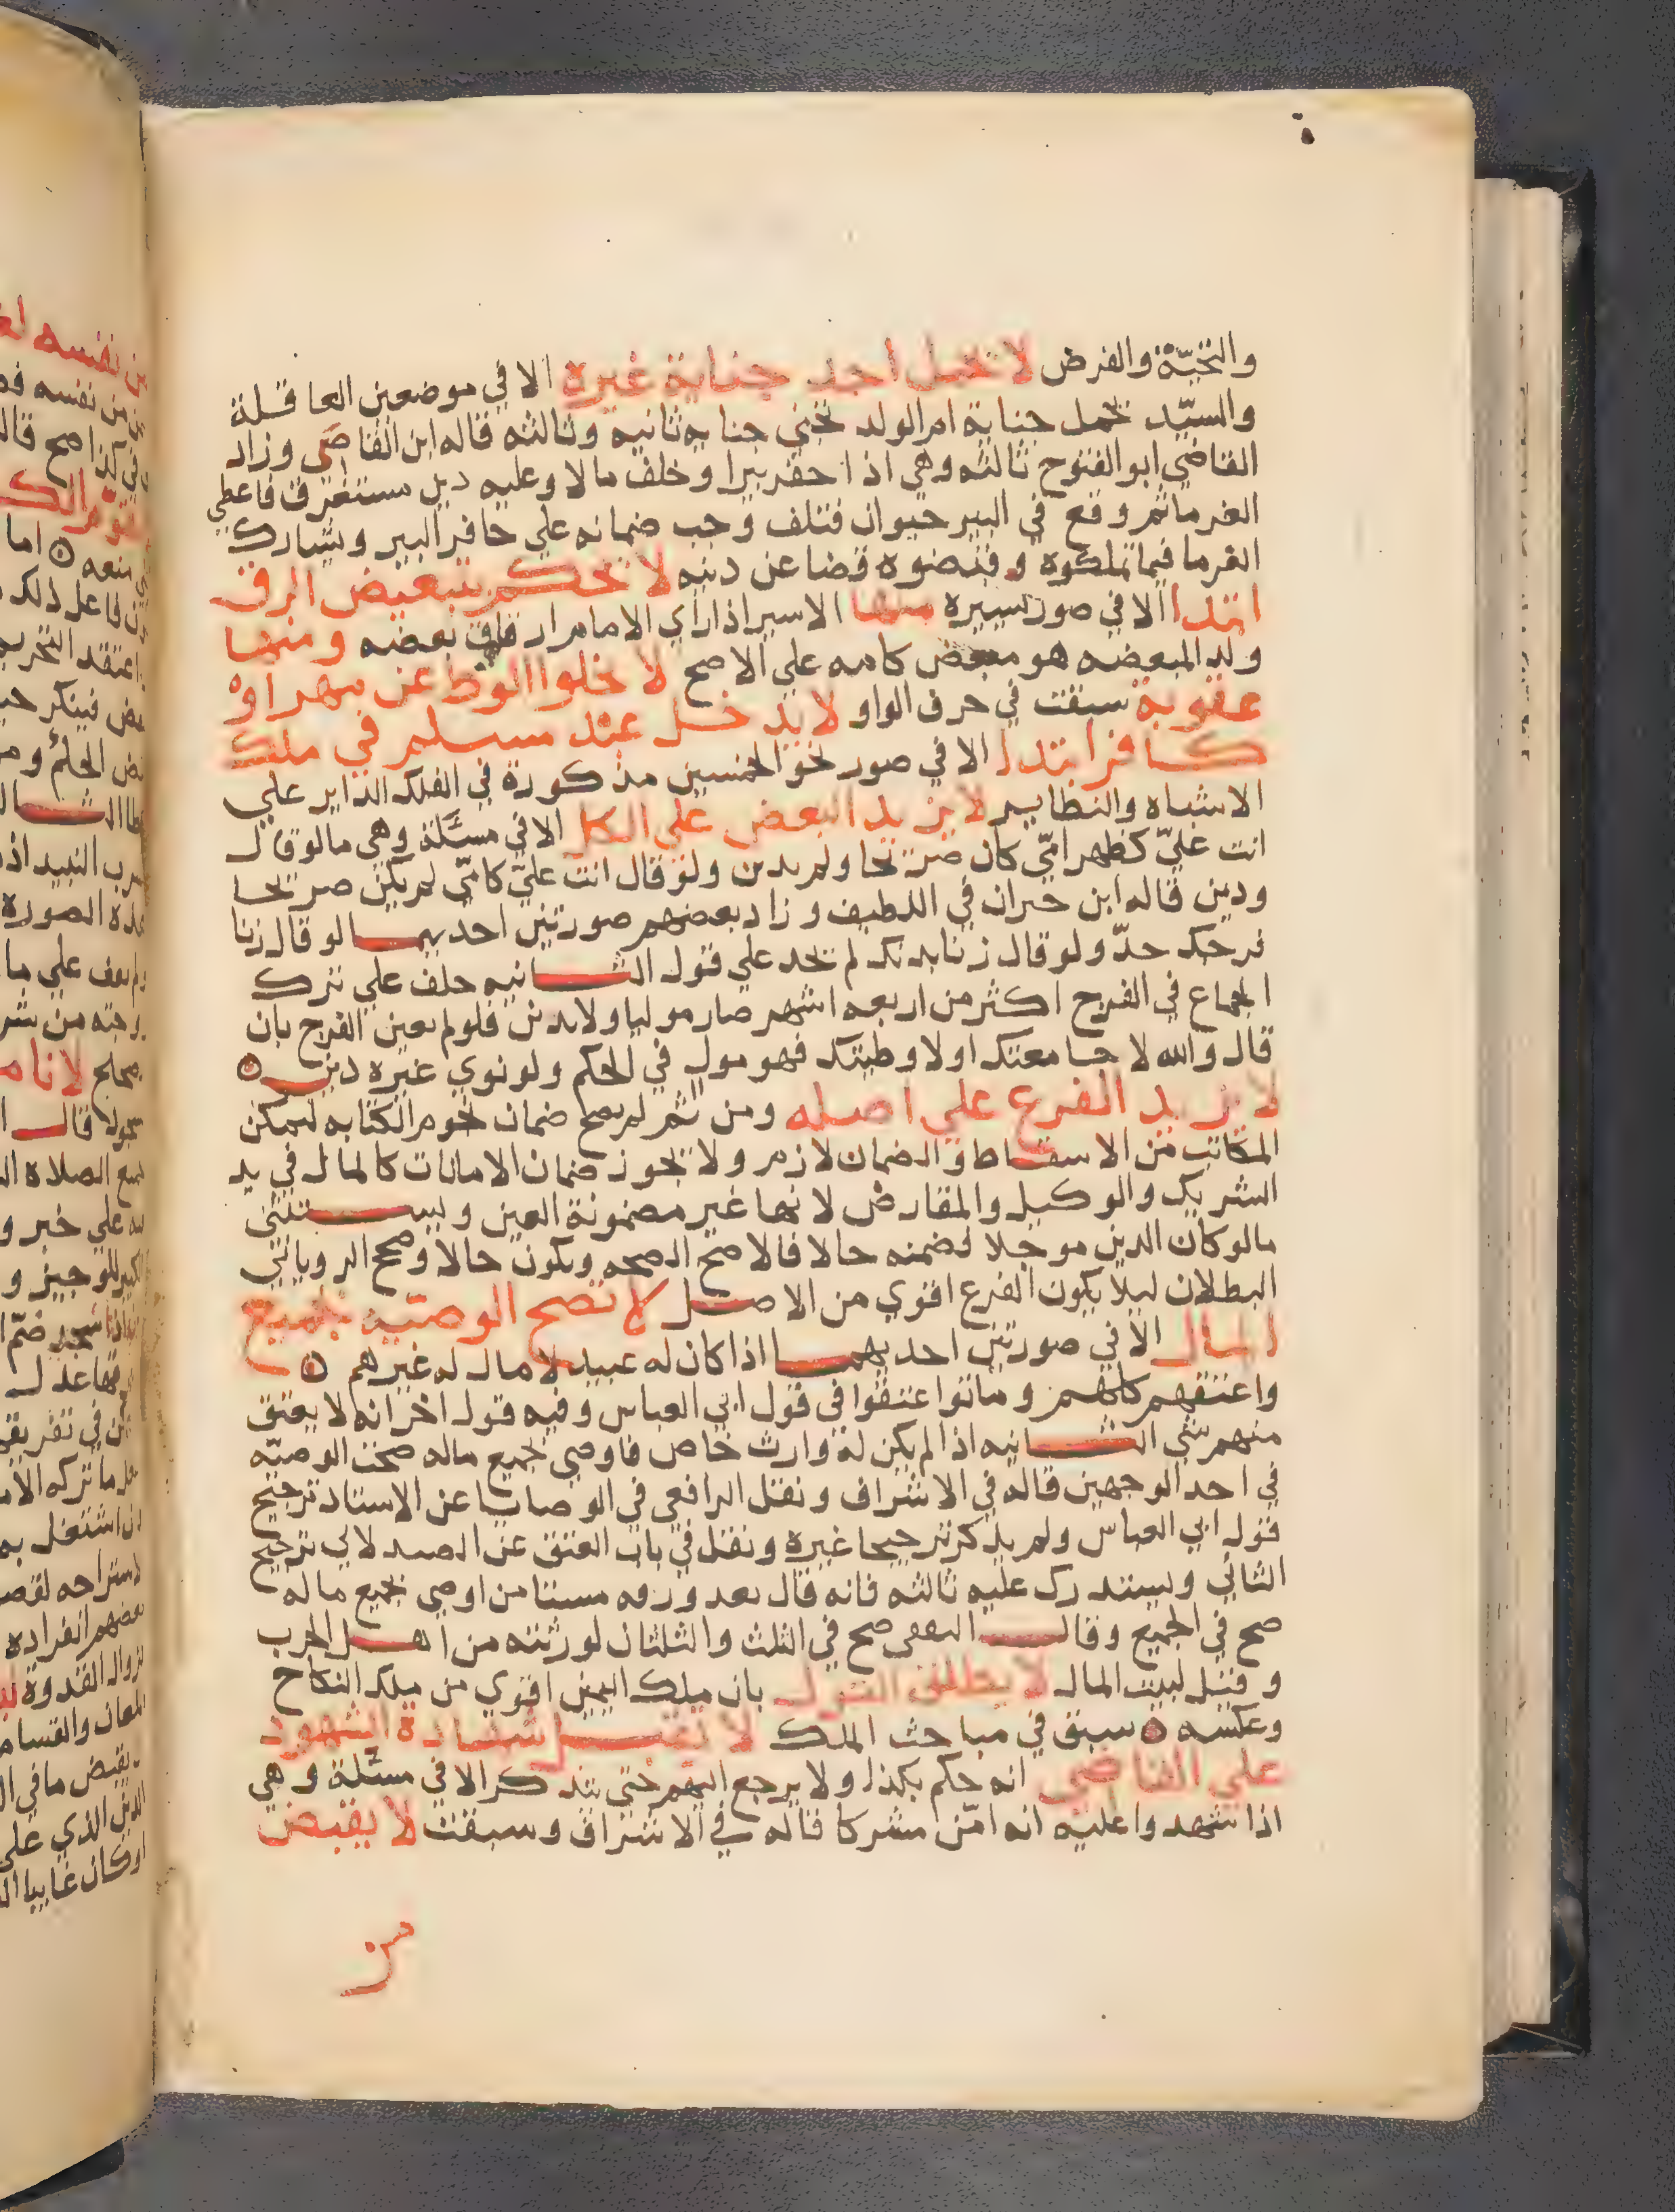 والتحيّة والفرض لا تحمل احد جناية غيره الا في موضعين العاقلة
والسيّد تحمل جناية ام الولد تجني جنايه ثانيه وثالثه قاله ابن القاصي وزاد
القاضي ابو الفتوح ثالثه وهي اذا حفر بيرا وخلف مالا وعليه دين مستغرق فاعطي
الغرما ثم وقع في البير حيوان فتلف وجب ضمانه علي حافر البير ويشارك
الغرما فيما تملكوه وقبضوه قضا عن دينه لا يحكم بتبعيض الرق
ابتدا الا في صور يسيره منها الاسير اذا راي الامام ارقاق بعضه ومنها
ولد المبعضه هو مبعض كامه علي الاصح لا يخلوا الوط عن مهر او
عقوبة سبقت في حرف الواو لا يدخل عبد مسلم في ملك
كافر ابتدا الا في صور نحو الخمسين مذكورة في الفلك الداير علي
الاشباه والنظاير لا يزيد البعض علي الكل الا في مسئلة وهي ما لو قال
انت عليّ كظهر امّي كان صريحا ولم يدين ولو قال انت عليّ كامّي لم يكن صريحا
ودين قاله ابن خيران في اللطيف وزاد بعضهم صورتين احديهما لو قال زنا
فرجك حدّ ولو قال زنا بدنك لم يحد علي قول الثانيه حلف علي ترك
الجماع في الفرج اكثر من اربعه اشهر صار موليا ولا يدين فلو لم يعين الفرج بان
قال والله لا جامعتك او لا وطيتك فهو مول في الحكم ولو نوي غيره دين
لا يزيد الفرع علي اصله ومن ثم لم يصح ضمان نجوم الكتابه لتمكن
المكاتب من الاسقاط والضمان لازم ولا يجوز ضمان الامانات كالمال في يد
الشريك والوكيل والمقارض لانها غير مضمونة العين ويستثني
ما لو كان الدين موجلا فضمنه حالا فالاصح الصحه ويكون حالا وصحح الروياني
البطلان ليلا يكون الفرع اقوي من الاصل لا تصح الوصيّة بجميع
المال الا في صورتين احديهما اذا كان له عبيد لا مال له غيرهم
واعتقهم كلهم وماتوا عتقوا في قول ابي العباس وفيه قول اخر انه لا يعتق
منهم شي الثانيه اذا لم يكن له وارث خاص فاوصي بجميع ماله صحت الوصيّه
في احد الوجهين قاله في الاشراف ونقل الرافعي في الوصايا عن الاستاد ترجيح
قول ابي العباس ولم يذكر ترجيحا غيره ونقل في باب العتق عن الصيدلاني ترجيح
الثاني ويستدرك عليه ثالثه فانه قال بعد ورقه مستامن اوصي بجميع ماله
صح في الجميع وقال القفال صح في الثلث والثلثان لورثته من اهل الحرب
وقيل لبيت المال لا يطلق القول بان ملك اليمين اقوي من ملك النكاح
وعكسه سبق في مباحث الملك لا تقبل شهادة الشهود
علي القاضي انه حكم بكذا ولا يرجع اليهم حتي يتذكر الا في مسئلة وهي
اذا شهدوا عليه انه امّن مشركا قاله في الاشراف وسبقت لا يقبض
من